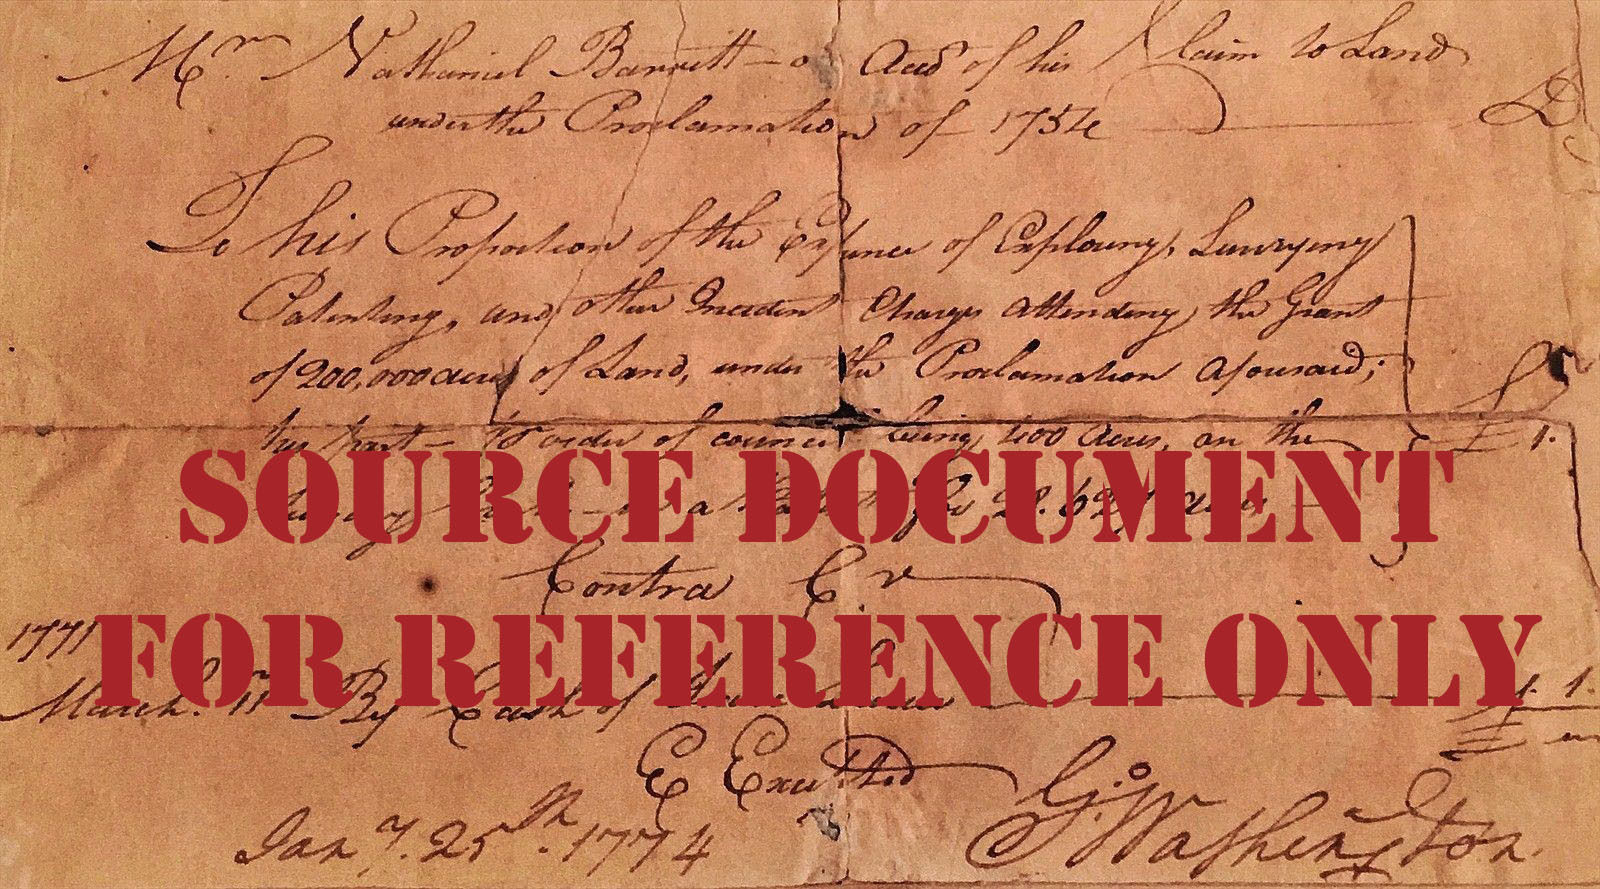 Mr. Nathaniel Barrett - on Accot of his Claim to Land
under the Proclamation of 1754 Dr
To his Proportion of the Expence of Exploring, Surveying
Patenting, and other Incident Charges Attending the Grant
of 200,000 acres of Land, under the Proclamation aforesaid;
his part - order of council being 400 Acres, on the
SOURCE DOCUMENT
Contra Cr
1771
FOR REFERENCE ONLY
March. By Cash of £ 1.
E Excepted
Jany. 25th. 1774 Go: Washington